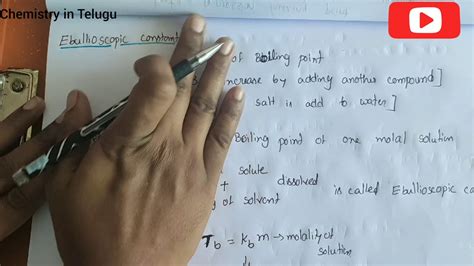 Chemistry in Telugu
Ebullioscopic constant
of Boiling point
increase by adding another compound]
salt is add to water]
Boiling point of one molal solution
solute
+ dissolved
of solvent is called Ebullioscopic
Tb = Kb m → molality of
solution